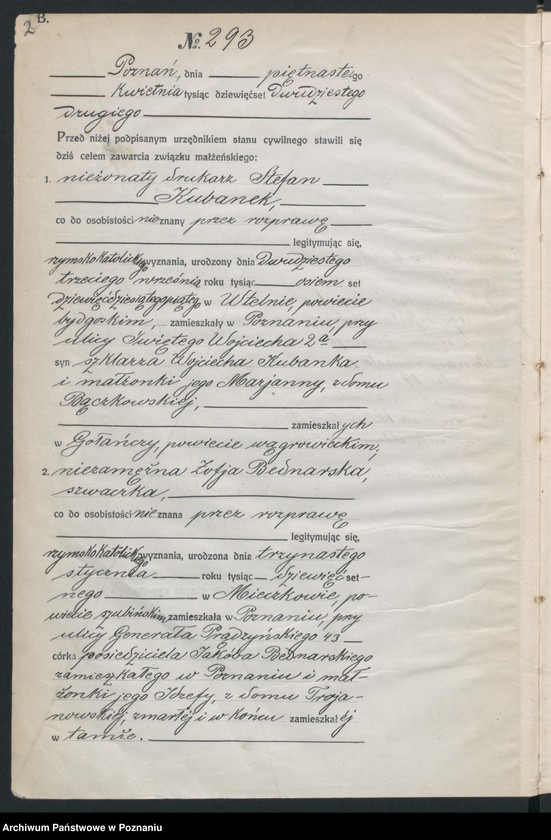 2 B.
No. 293
Poznań, dnia piętnastego
Kwietnia tysiąc dziewięćset Dwudziestego
drugiego
Przed niżej podpisanym urzędnikiem stanu cywilnego stawili się
dziś celem zawarcia związku małżeńskiego:
1. nieżonaty drukarz Stefan
Kubanek,
co do osobistości nieznany przez rozprawę
legitymując się,
rzymsko katolickiego wyznania, urodzony dnia Dwudziestego
trzeciego września roku tysiąc osiem set
dziewięćdziesiątego piątego w Wtelnie, powiecie
bydgoskim, zamieszkały w Poznaniu, przy
ulicy Świętego Wojciecha 2a
syn szklarza Wojciecha Kubanka
i małżonki jego Marjanny, z domu
Bączkowskiej,
zamieszkałych
w Gołańczy, powiecie wągrowieckim,
2. niezamężna Zofja Bednarska,
szwaczka,
co do osobistości nieznana przez rozprawę
legitymując się,
rzymsko katolickiego wyznania, urodzona dnia trzynastego
stycznia roku tysiąc dziewięć set-
nego w Mieczkowie, po-
wiecie szubińskim, zamieszkała w Poznaniu, przy
ulicy Generała Prądzyńskiego 43
córka posiedziciela Jakóba Bednarskiego
zamieszkałego w Poznaniu i mał-
żonki jego Józefy, z domu Troja-
nowskiej, zmarłej i w końcu zamieszkałej
w tamże.
Archiwum Państwowe w Poznaniu